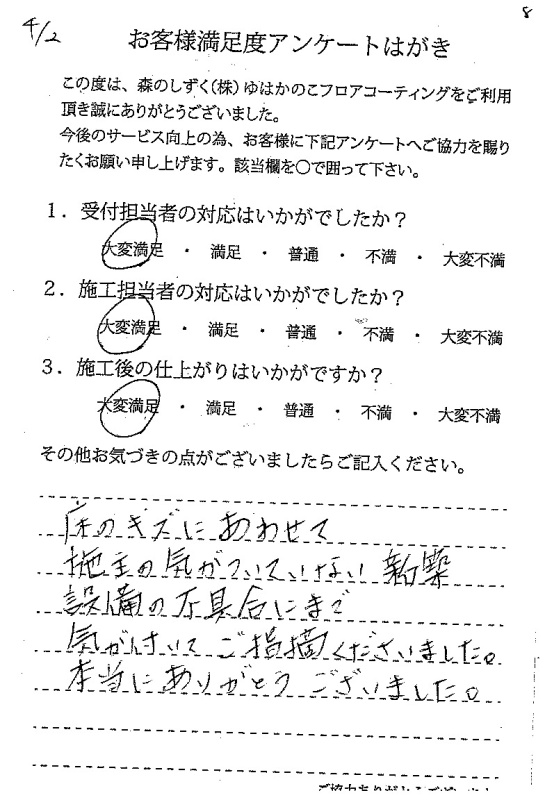 4/2
8
お客様満足度アンケートはがき
この度は、森のしずく(株)ゆはかのこフロアコーティングをご利用
頂き誠にありがとうございました。
今後のサービス向上の為、お客様に下記アンケートへご協力を賜り
たくお願い申し上げます。該当欄を○で囲って下さい。
1．受付担当者の対応はいかがでしたか？
大変満足 ・ 満足 ・ 普通 ・ 不満 ・ 大変不満
2．施工担当者の対応はいかがでしたか？
大変満足 ・ 満足 ・ 普通 ・ 不満 ・ 大変不満
3．施工後の仕上がりはいかがですか？
大変満足 ・ 満足 ・ 普通 ・ 不満 ・ 大変不満
その他お気づきの点がございましたらご記入ください。
床のキズにあわせて
施主の気がついていない新築
設備の不具合にまで
気がけいて ご指摘くださいました。
本当にありがとうございました。